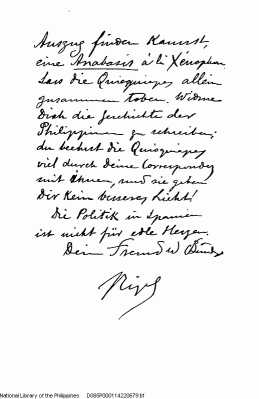 Auszug finden kannst,
eine Anabasis à la Xénophon
Lass die Quioquiapes allein
zusammen toben. Widme
Dich die Geschichte der
Philippinen zu schreiben;
du beehrst die Quioquiapes
viel durch Deine Correspondez
mit ihnen, und sie geben
Dir kein besseres Licht!
Die Politik in Spanien
ist nicht für edle Herzen.
Dein Freund u
Rizal
National Library of the Philippines